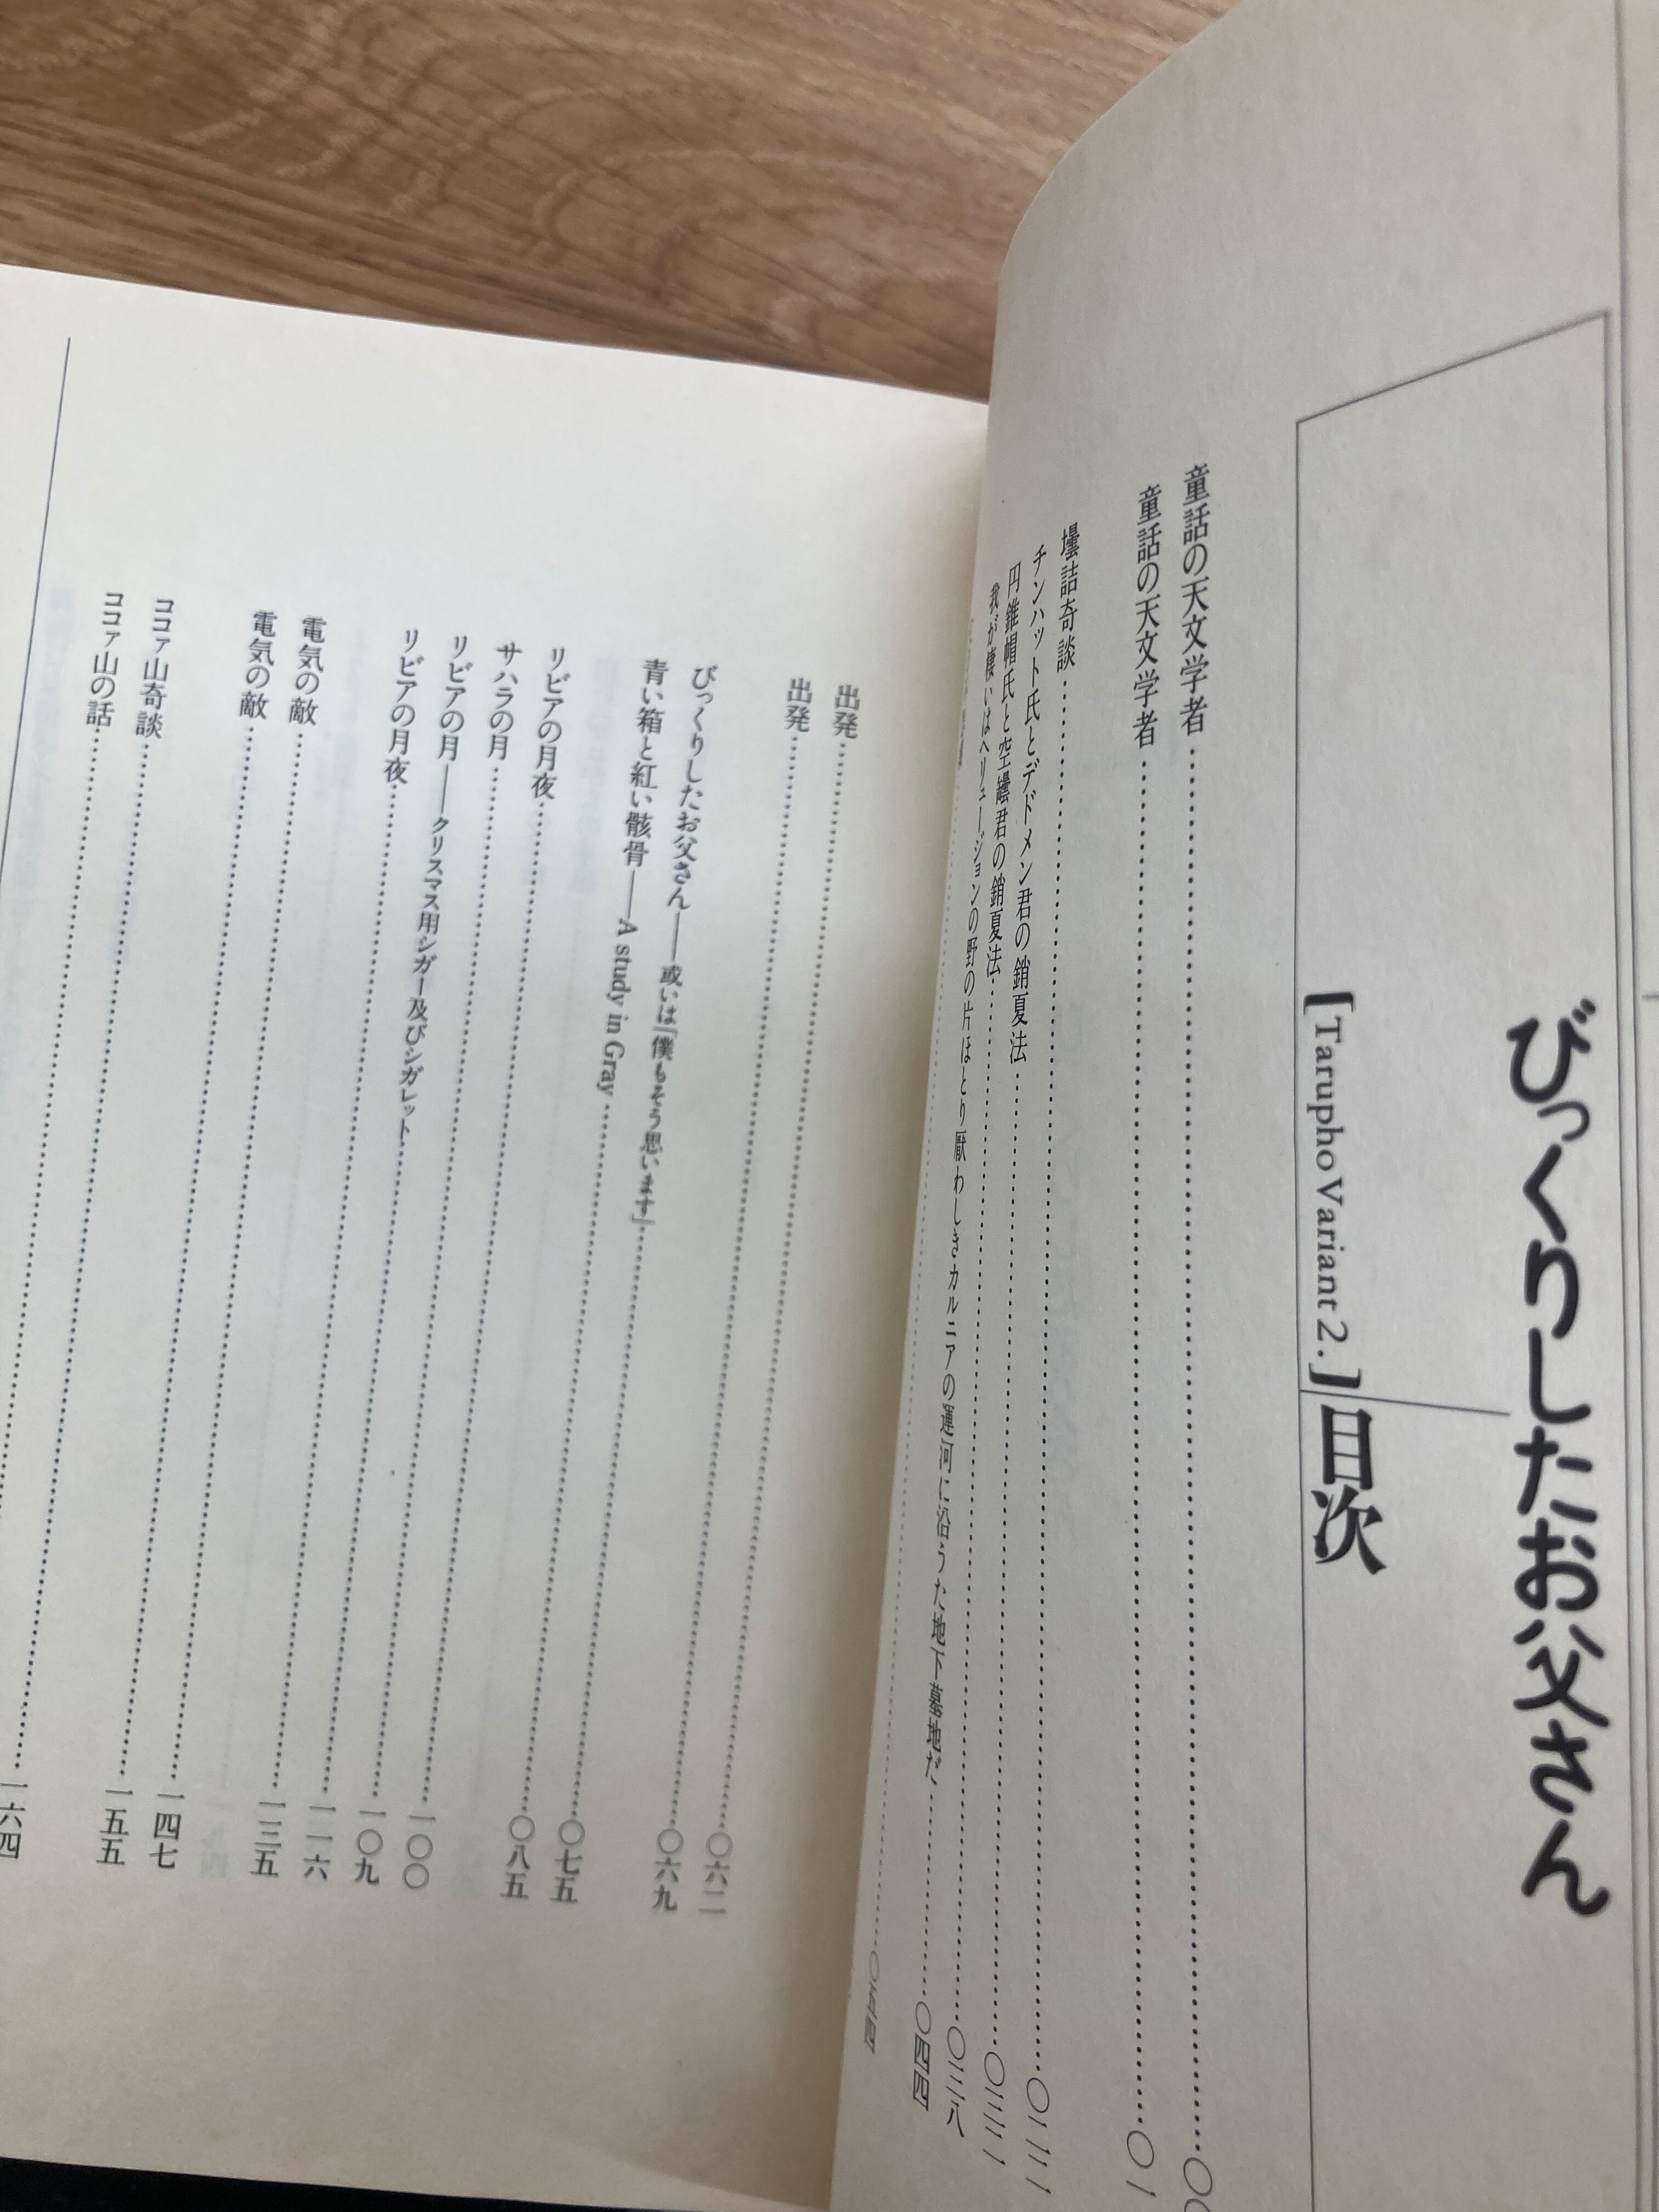 びっくりしたお父さん
[Tarupho Variant 2.] 目次
童話の天文学者
童話の天文学者
壜詰奇談
チンハット氏とデドメン君の銷夏法
円錐帽氏と空罎君の銷夏法……〇三八
我が棲いはヘリュージョンの野の片ほとり厭わしきカルニアの運河に沿うた地下墓地だ……〇四四
……〇五四
出発……〇六二
出発……〇六九
びっくりしたお父さん――或いは「僕もそう思います」……〇七五
青い箱と紅い骸骨――A study in Gray……〇八五
リビアの月夜……一〇〇
サハラの月……一〇九
リビアの月――クリスマス用シガー及びシガレット……一一六
リビアの月夜……一三五
電気の敵……一四七
電気の敵……一五五
ココァ山奇談……一六四
ココァ山の話